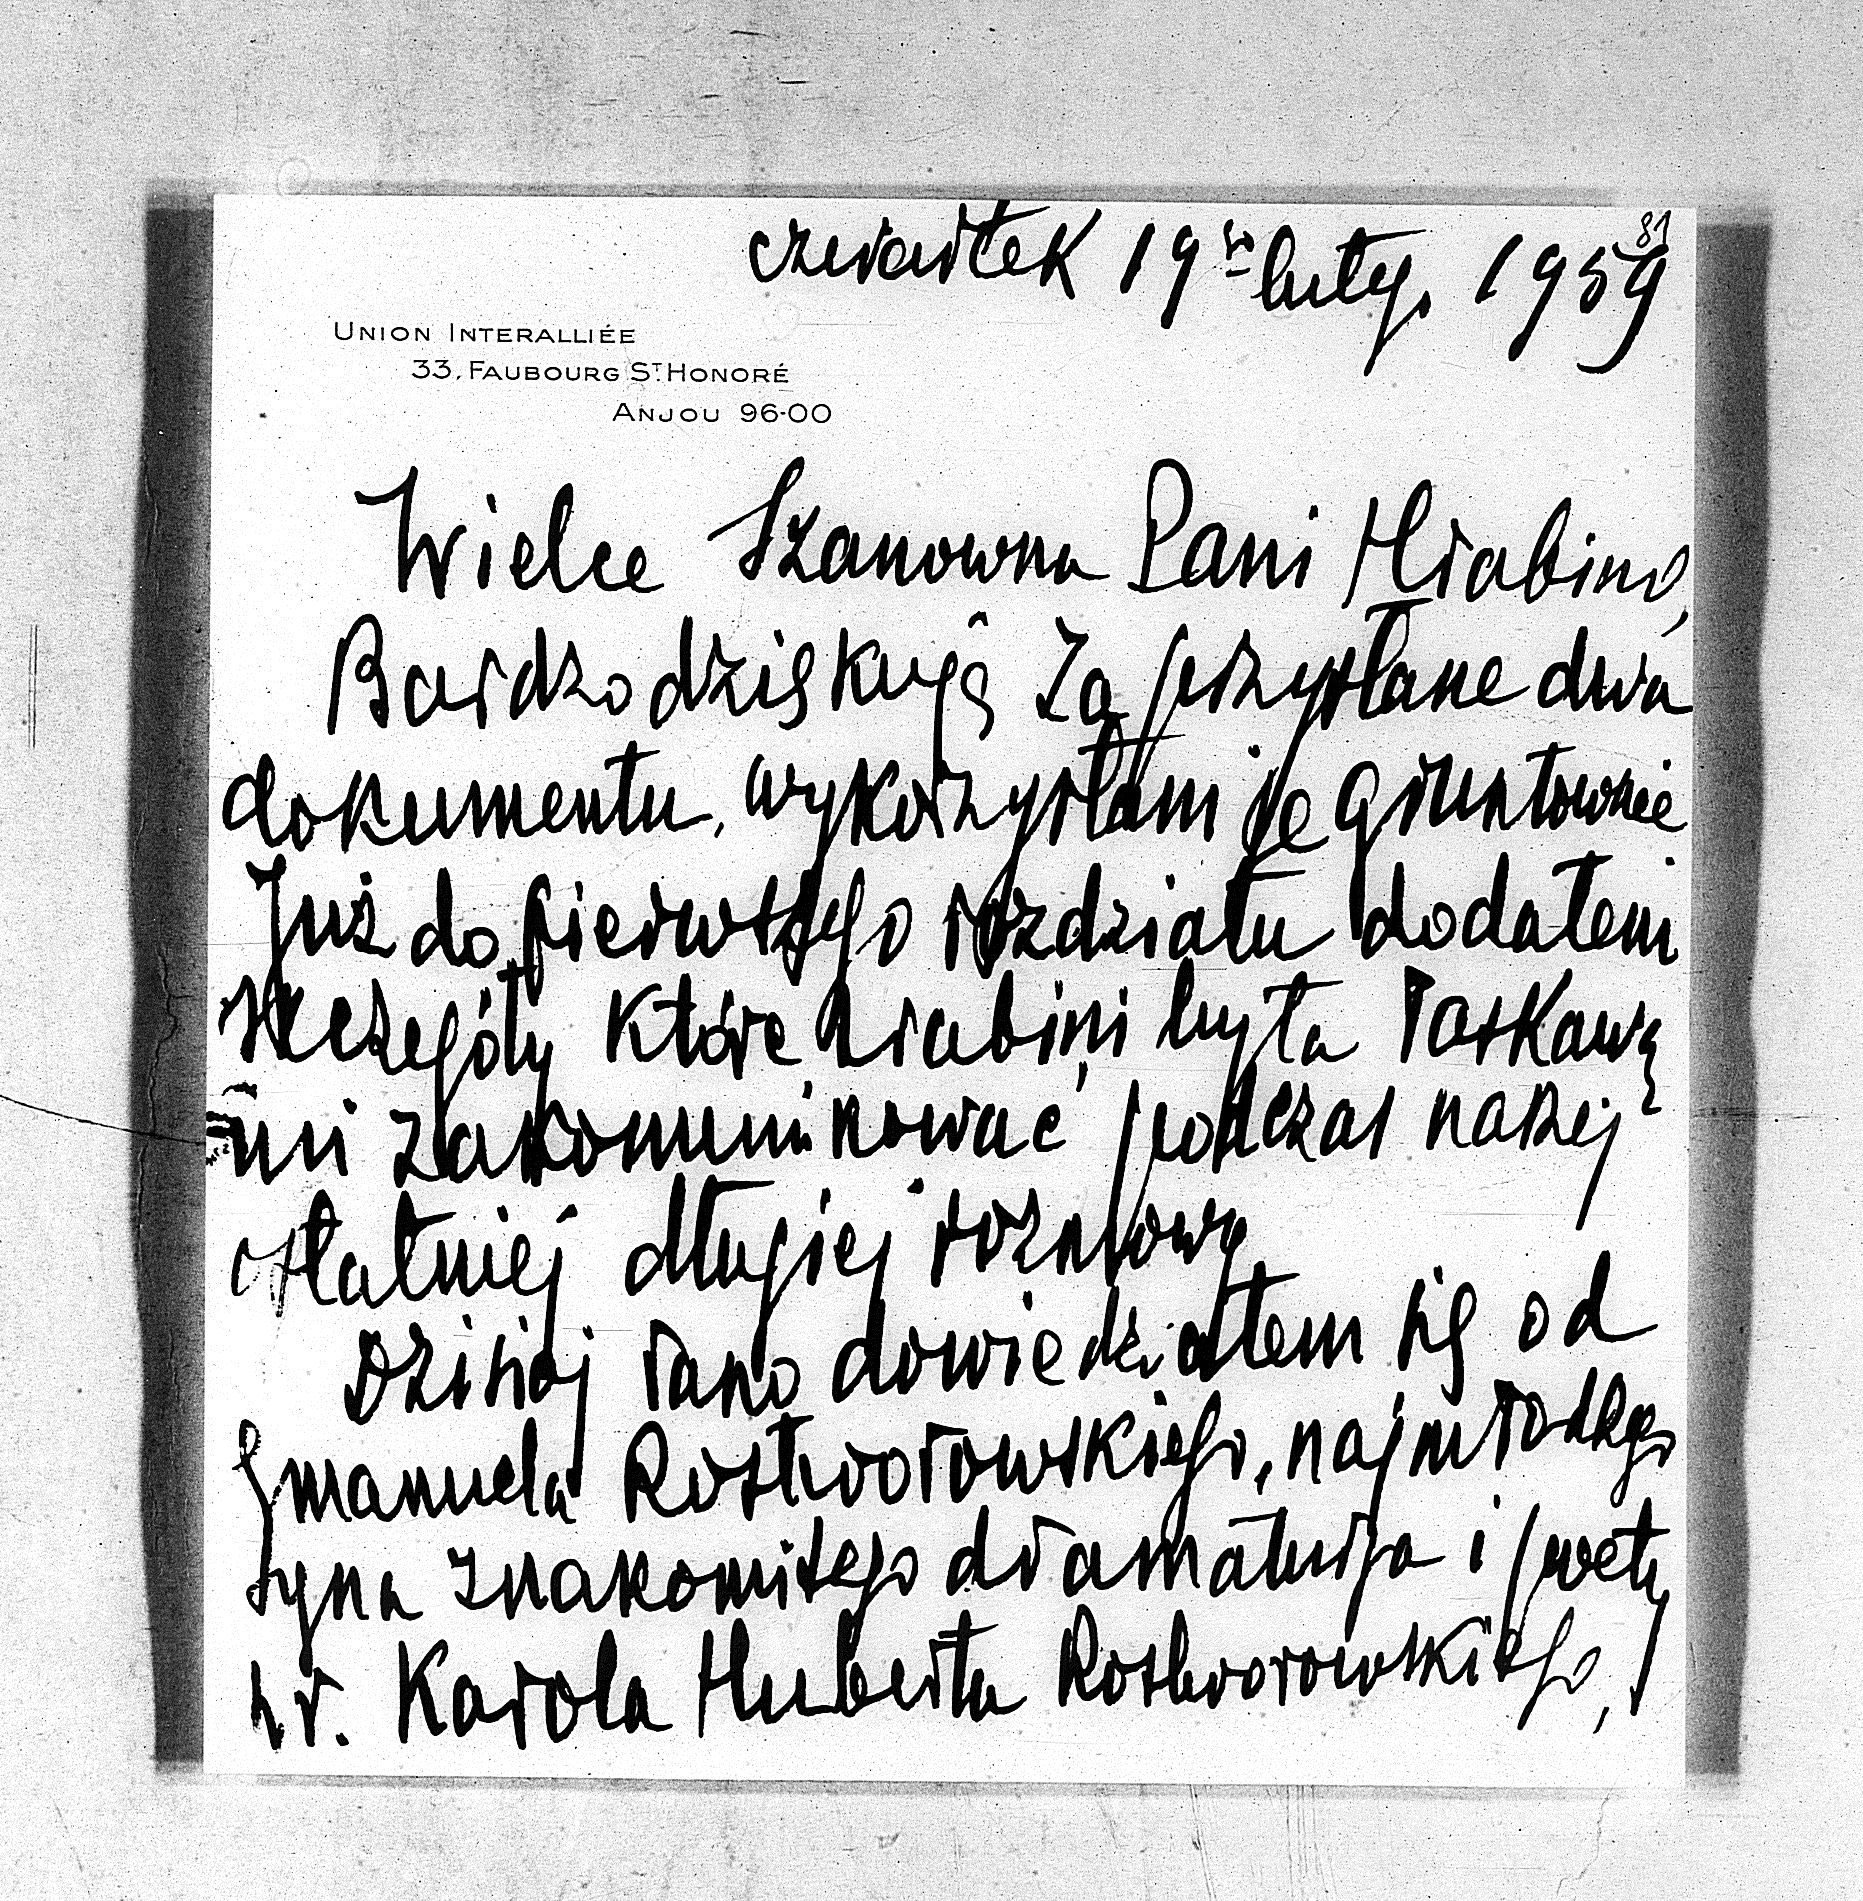 81
czwartek 19go lutego 1959
UNION INTERALLIÉE
33, FAUBOURG ST. HONORÉ
ANJOU 96-00
Wielce Szanowna Pani Hrabino,
Bardzo dziękuję za przysłane dwa
dokumentu, wykorzystam je gruntownie
Już do pierwszego rozdziału dodałem
szczegóły które Hrabini była łaskawą
mi zakomunikować podczas naszej
ostatniej długiej rozmowy
Dzisiaj rano dowiedziałem się od
Emanuela Rostworowskiego, najmłodszego
syna znakomitego dramaturga i poety
hr. Karola Huberta Rostworowskiego,